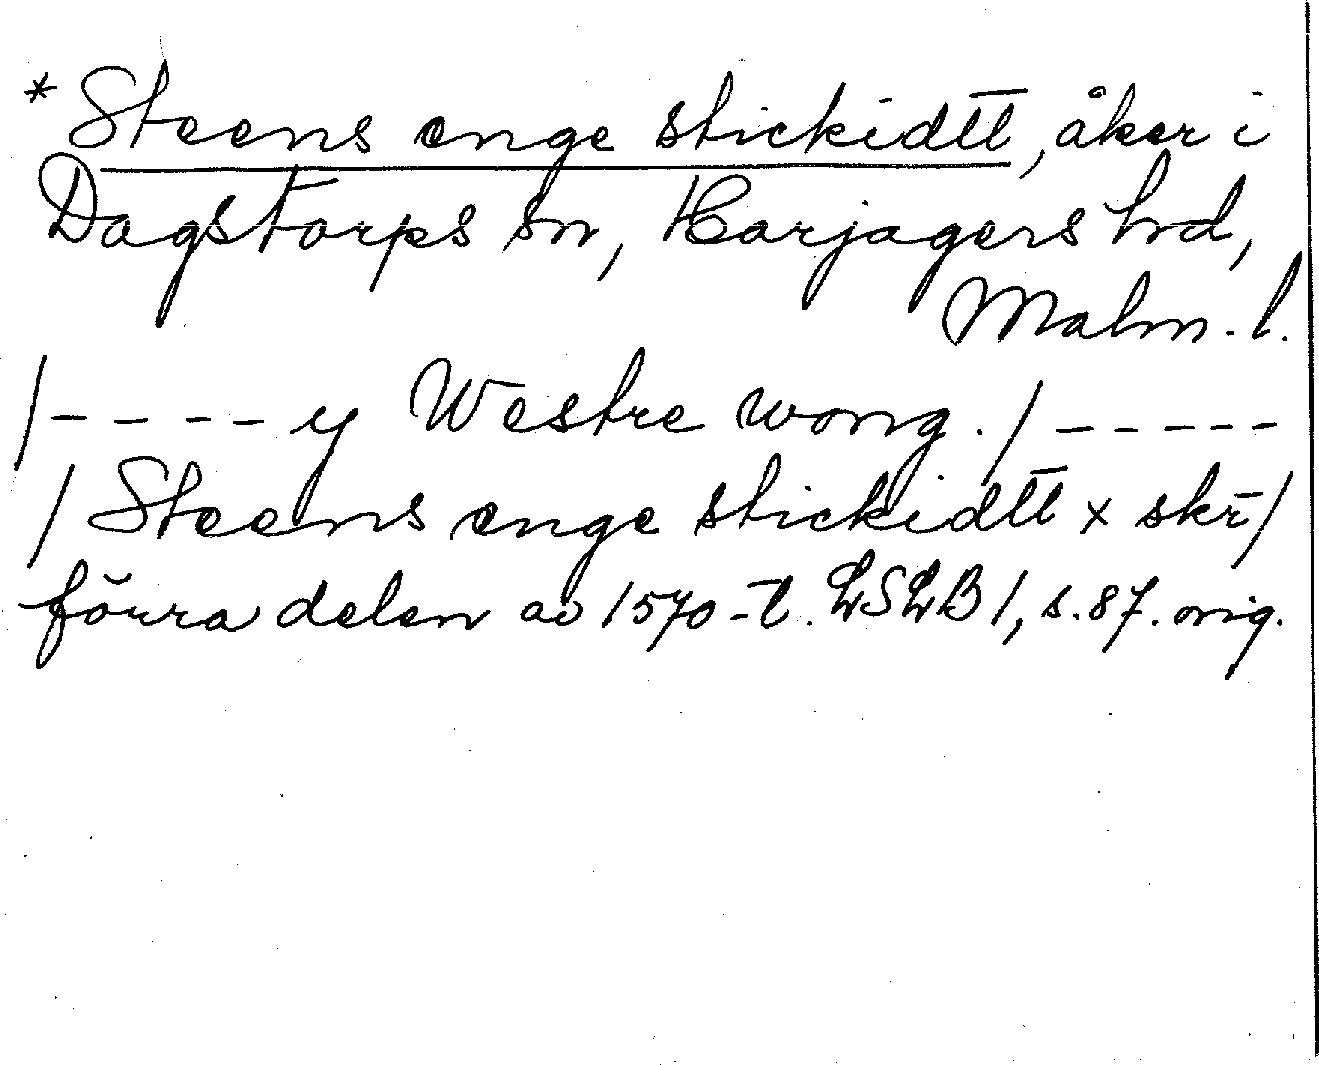 *Steens enge stickidtt̅, åker i
Dagstorps sn, Harjagers hd,
Malm. l.
/- - - - y Westre wong. / - - - - -
/ Steens enge stickidtt̅ x skr̅ /
förra delen av 1570-t. LSLB 1, s. 87. orig.